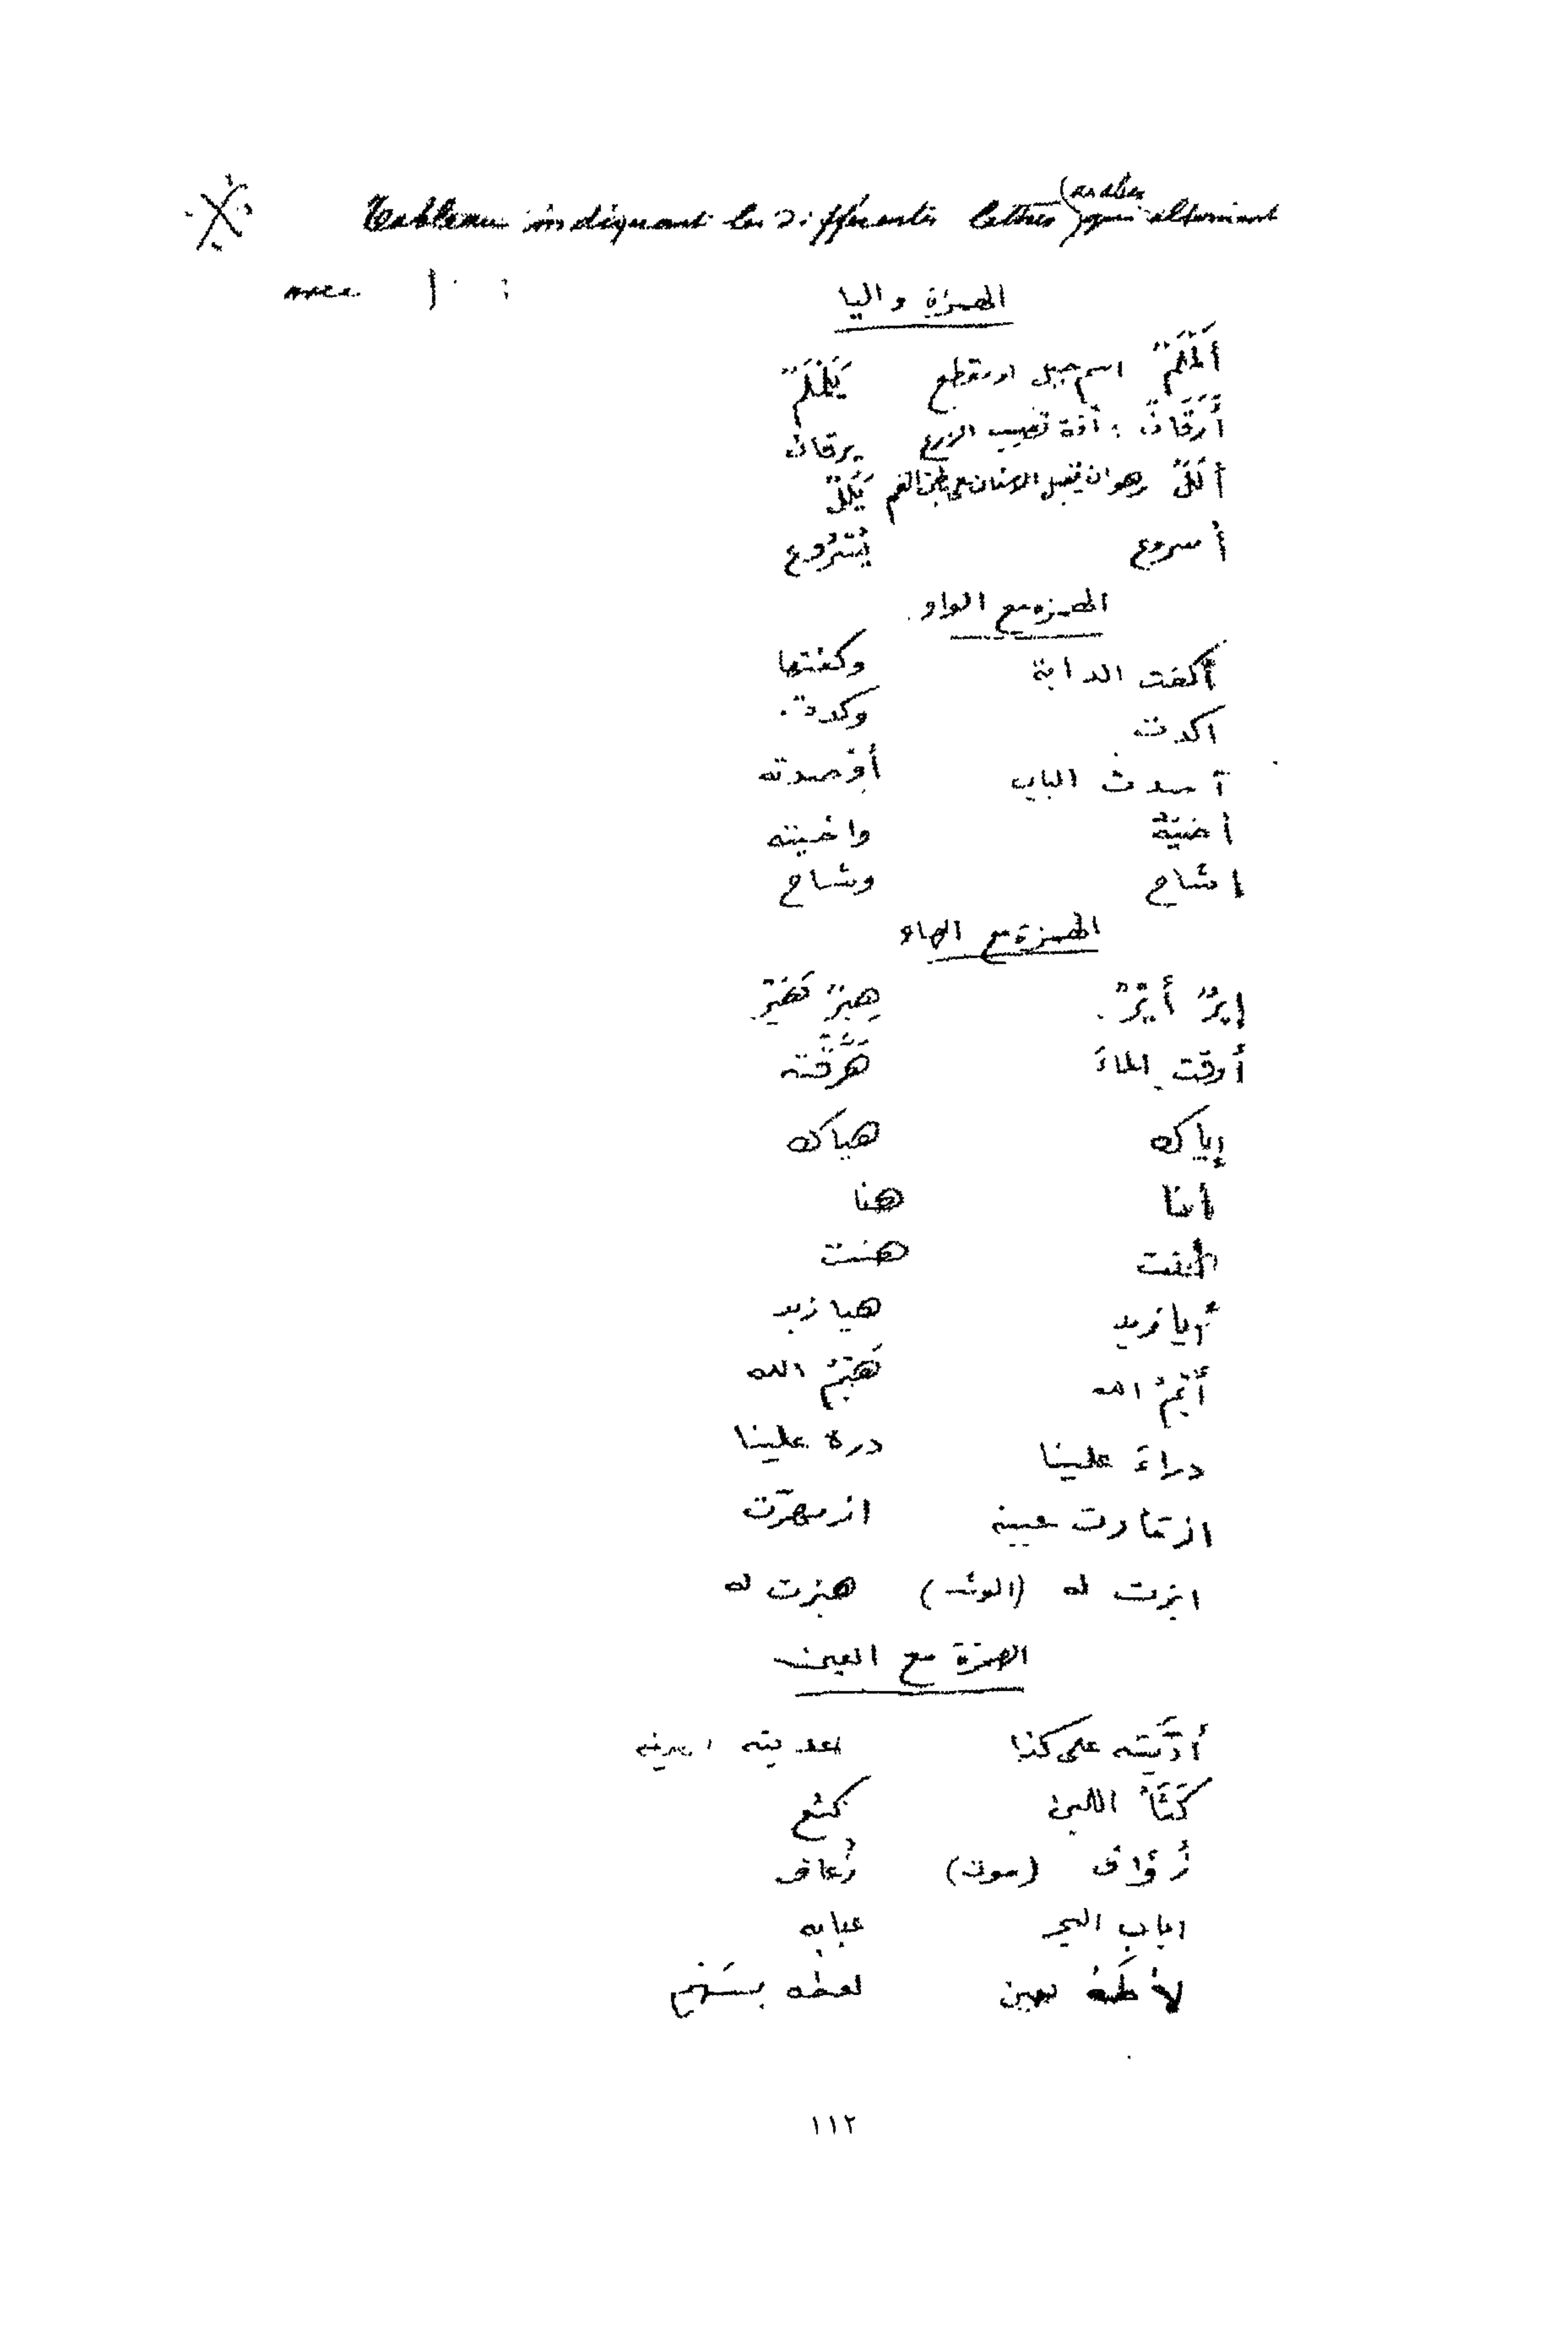 Tableau indiquant les différentes lettres (arabes) qui alternent
avec ا :
الهمزة واليا
أَلَمْلَمٌ اسم جبل او مقطع يَلَمْلَمٌ
أَرَقَانٌ : آفة تصيب الزرع يرقان
أَلَلٌ وهو ان تقبل الاسنان على باطن الفم يَلَلٌ
أسروع يُسْرُوع
الهمزه مع الواو
أكفت الدابة وكفتها
اكدت وكدت
آصدت الباب أوْصدته
أخيتهُ واخيته
اشاح وشاح
الهمزة مع الهاء
إيرٌ أَيْرٌ هِيرٌ هَيْرٌ
أَرقت الماءَ هَرَقْته
إياك هياك
أنا هنا
أنت هنت
أيا زيد هيا زيد
أَيْمُ الله هَيْمُ الله
دراءَ علينا دره علينا
ازمأرت عينه ازمهرّت
ابزت له (الوثب) هبزت له
الهمزة مع العين
أدَّيته على كذا اعديته
كَثَأَ اللبن كثع
زُؤاف (موت) زُعاف
اباب البحر عبابه
لأطَهُ بعين لعطه بسَهم
١١٢